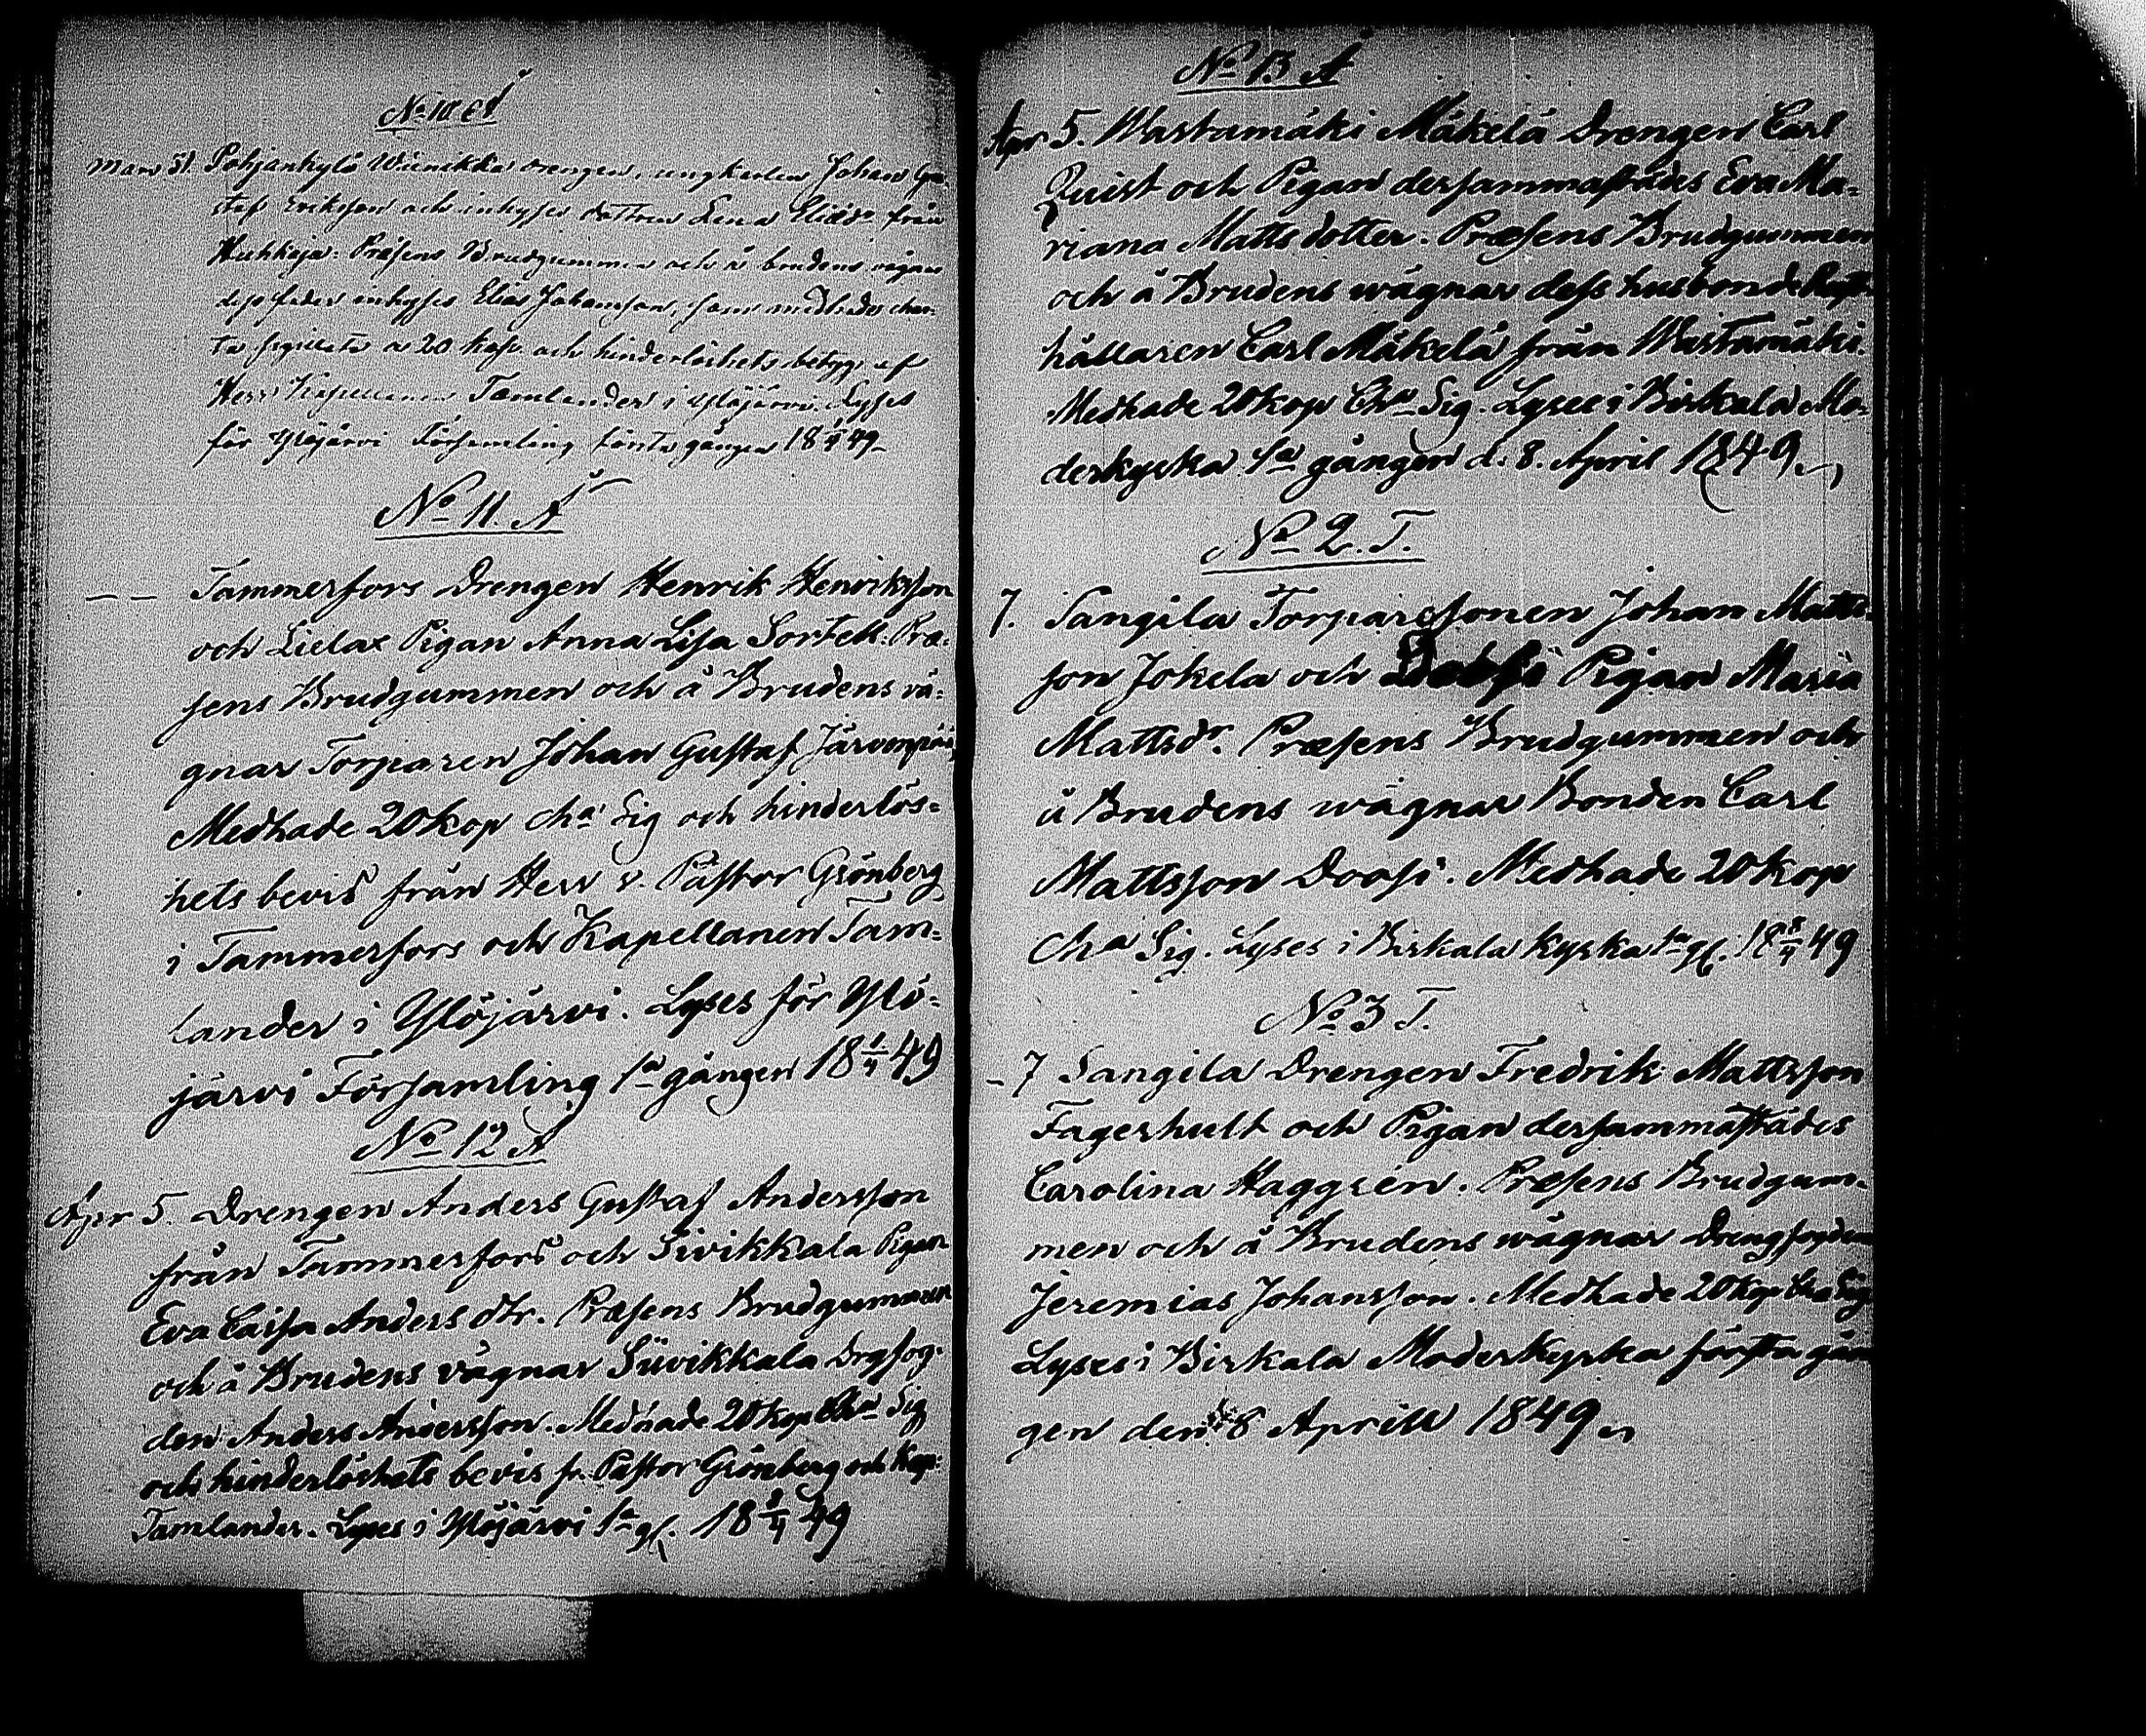 No 10 Å
Mars 31. Pohjankylä Wäinikka drengen, ungkarlen Johan Gu-
staf Eriksson och inhyses dottren Lena Eliædr från
Huhkoja: Præsens Brudgummen och å brudens vägnar
dess fader inhyses Elias Johansson, som medhades char-
ta sigillata a 20 kop. och hinderlöshets betyg af
Herr Kapellanen Tamlander i Ylöjärvi. Lyses
för Ylöjärvi Församling första gången 18 1/4 49
No 11. Å
— — Tammerfors Drengen Henrik Henriksson
och Lielax Pigan Anna Lisa Sortell. Præ-
sens Brudgummen och å Brudens vä-
gnar Torparen Johan Gustaf Järvenpää,
Medhade 20 kop cha Sig och hinderlös-
hets bevis från Herr v. Pastor Grönberg
i Tammerfors och Kapellanen Tam-
lander i Ylöjärvi. Lyses för Ylö-
järvi Församling 1a gången 18 1/4 49
No 12 Å
Apr 5. Drengen Anders Gustaf Andersson
från Tammerfors och Siivikkala Pigan
Eva Caisa Andersdtr. Præsens Brudgummen
och å Brudens vägnar Siivikkala Drgfog-
den Anders Andersson. Medhade 20 kop Cha Sig
och hinderlöshets bevis fr. Pastor Grönberg och Kap:
Tamlander. Lyses i Ylöjärvi 1a g. 18 8/4 49
No 13 Å
Apr 5. Wastamäki Mäkelä Drengen Carl
Quist och Pigan dersammastädes Eva Ma-
riana Mattsdotter. Præsens Brudgummen
och å Brudens wägnar dess husbonde
hållaren Carl Mäkelä från Wastamäki.
Medhade 20 kop Cha Sig. Lyses i Birkala Mo-
derkyrka 1a gången d. 8. April 1849
No 2. T.
7. Sangila Torparesonen Johan Matts-
son Jokela och Pigan Maria
Mattsdr. Præsens Brudgummen och
å Brudens wägnar Bonden Carl
Mattsson Doosi. Medhade 20 kop
Cha Sig. Lyses i Birkala kyrka 1a g. 18 8/4 49
No 3 T.
- 7 Sangila Drengen Fredrik Mattsson
Fagerhult och Pigan dersammastädes
Carolina Haggrén. Præsens Brudgum-
men och å Brudens wägnar Drengfogden
Jeremias Johansson. Medhade 20 kop Cha Sig
Lyses i Birkala Moderkyrka första gån-
gen den 8 Aprill 1849